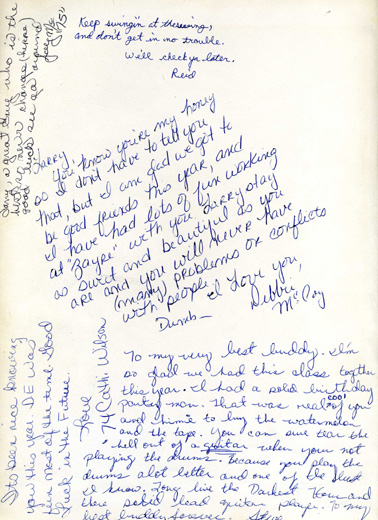 Keep swingin at thesewing,
and don't get in no trouble.
Will check ya later.
Reid
a great guy who is the
never changes
good luck see ya around
Larry,
you know you're my honey
so I don't have to tell you
that, but I am glad we got to
be good friends this year, and
I have had lots of fun working
at "Zayre" with you. Larry stay
as swut and beautiful as you
are and you will never have
(many) problems or conflicts
with people. I Love you,
Debbie
McCoy
Dumb—
Its been nice knowing
you this year. DE was
fun most of the time. Good
Luck in the Future.
Love
Cathi Wilson
74
To my very best buddy. I'm
so glad we had this class togther
this year. I had a solid birthday
party man. That was real cool of you
and himie to buy the watermelon
and the tape. You can sure tear the
hell out of a guitar when your not
playing the drums. Because you play the
drums alot better and one of the best
I know. Long live the Darkest Hour and
there solid lead guitar player. To my
best buddy forever. Steve